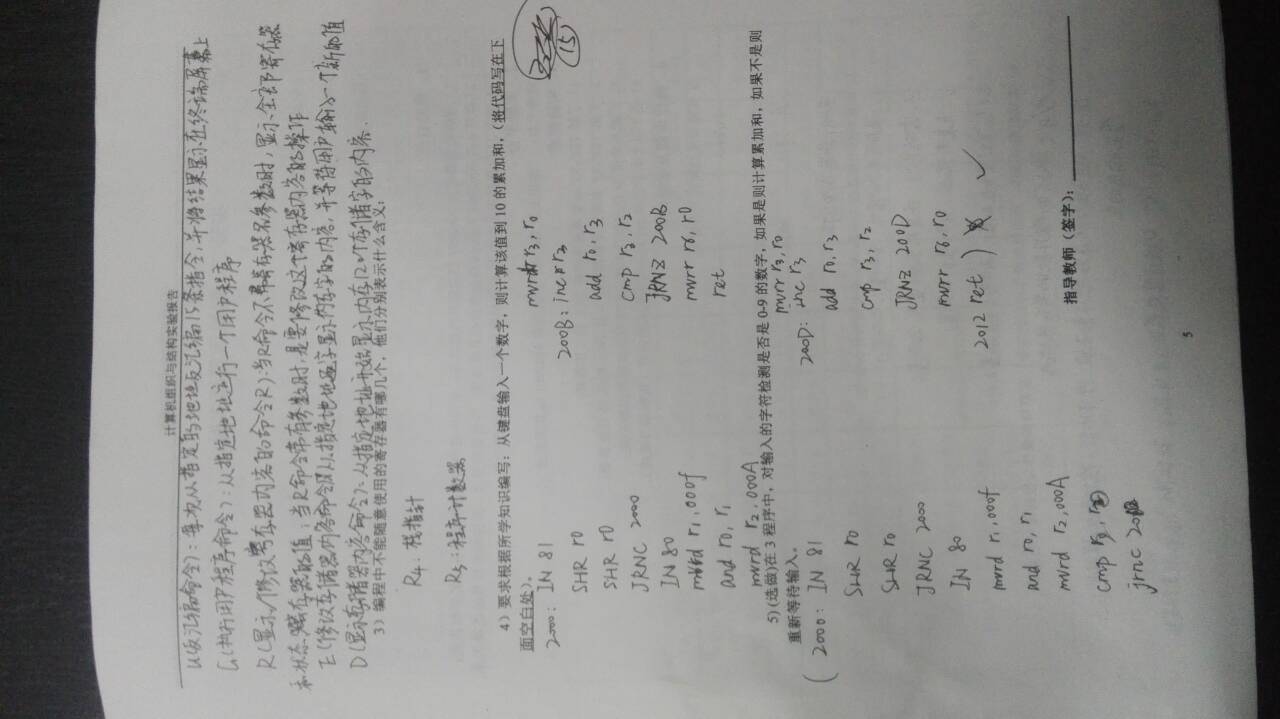 计算机组织与结构实验报告
U(反汇编命令)：每次从指定的地址反汇编15条指令，并将结果显示在终端屏幕上
G(执行用户程序命令)：从指定地址运行一个用户程序
R(显示/修改寄存器内容的命令R)：当R命令不带寄存器名参数时，显示全部寄存器
和状态寄存器的值；当R命令带有参数时，是要修改这个寄存器内容的操作
E(修改存储器内容命令)：从指定地址逐字显示内存字的内容，并等待用户输入一个新的值
D(显示存储器内容命令)：从指定地址开始显示内存120个存储字的内容.
3）编程中不能随意使用的寄存器有哪几个，他们分别表示什么含义：
R4：栈指针
R5：程序计数器
4）要求根据所学知识编写：从键盘输入一个数字，则计算该值到 10 的累加和，（将代码写在下
面空白处）。
2000: IN 81
SHR r0
SHR r0
JRNC 2000
IN 80
mvrd r1,000f
and r0, r1
mvrd r2,000A
mvrr r3, r0
200B: inc r3
add r0, r3
cmp r3, r2
JRNZ 200B
mvrr r6, r0
ret
(15)
5) (选做)在 3 程序中，对输入的字符检测是否是 0-9 的数字，如果是则计算累加和，如果不是则
重新等待输入。
( 2000: IN 81
SHR r0
SHR r0
JRNC 2000
IN 80
mvrd r1,000f
and r0, r1
mvrd r2,000A
cmp
jrnc
mvrr r3, r0
200D: inc r3
add r0, r3
cmp r3, r2
JRNZ 200D
mvrr r6, r0
2012 ret ) ✓
指导教师（签字）：
5